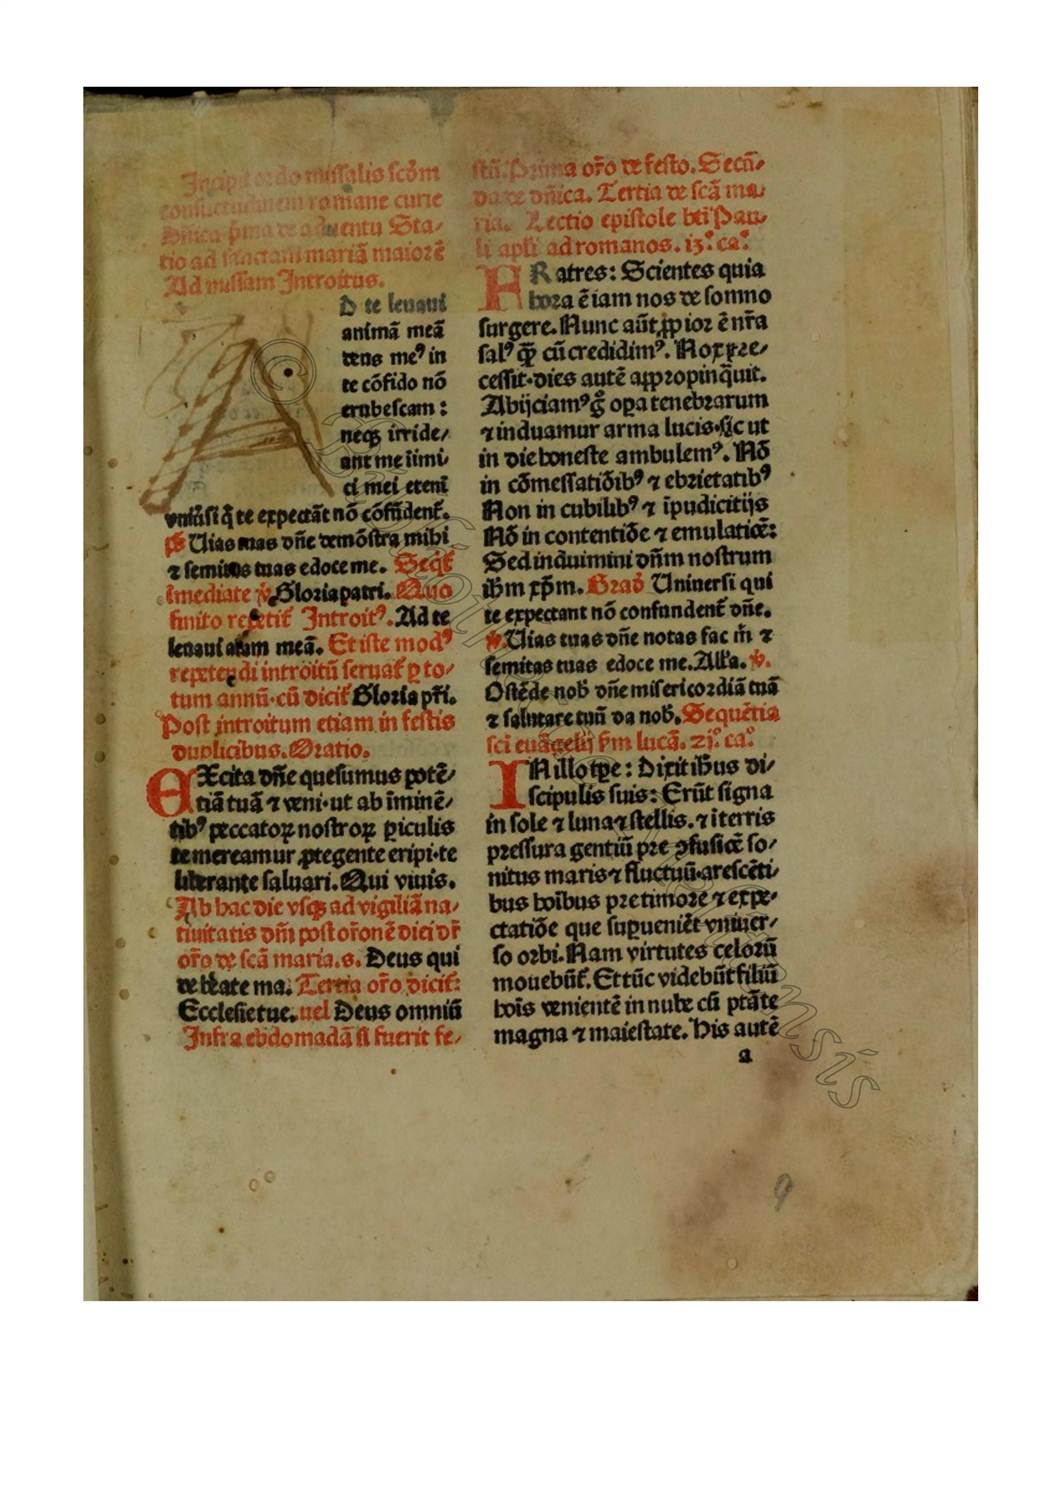 Incipit ordo missalis scđm
consuetudinem romane curie
Dñica p̃ma de aduentu Sta⸗
tio ad sanctam mariã maiorẽ
Ad missam Introitus.
D te leuaui
animã meã
deus meꝰ in
te cõfido nõ
erubescam :
neqꝫ irride⸗
ant me inimi⸗
ci mei eteni
vniũsi q̃ te expectãt nõ cõfũdent̃.
p̃s Uias tuas dñe demõstra mihi
⁊ semitas tuas edoce me. Seqt̃
ĩmediate ꝟ. Gloria patri. Quo
finito repetit̃ Introitꝰ. Ad te
leuaui aiam meã. Et iste modꝰ
repetendi introitũ seruat̃ ꝑ to⸗
tum annũ·cũ dicit̃ Gloria pr̃i.
Post introitum etiam in festis
duplicibus. Oratio.
EXcita dñe quesumus potẽ⸗
tiã tuã ⁊ veni·ut ab ĩminẽ⸗
tibꝰ peccatoꝝ nostroꝝ ꝑiculis
te mereamur ꝓtegente eripi·te
liberante saluari. Qui viuis.
Ab hac die vsqꝫ ad vigiliã na⸗
tiuitatis dñi post or̃onẽ dici dr̃
or̃o de scã maria.s. Deus qui
de bẽate ma. Tertia or̃o dicit̃:
Ecclesie tue. uel Deus omniũ
Infra ebdomadã si fuerit fe⸗
stũ. Prima or̃o de festo. Secũ⸗
da de dñica. Tertia de scã ma⸗
ria. Lectio epistole bti Pau⸗
li apl̃i ad romanos. 13.° ca.°
FRatres: Scientes quia
hora ẽ iam nos de somno
surgere. Nunc aũt ꝓpior ẽ nr̃a
salꝰ qꝫ̃ cũ credidimꝰ. Nox pre⸗
cessit·dies autẽ appropinq̃uit.
Abijciamꝰ g̊ oꝑa tenebrarum
⁊ induamur arma lucis·sic ut
in die honeste ambulemꝰ. Nõ
in cõmessatiõibꝰ ⁊ ebrietatibꝰ
Non in cubilibꝰ ⁊ ĩpudicitijs
Nõ in contentiõe ⁊ emulatiõe:
Sed induimini dñm nostrum
ihm xp̃m. Grad̃ Uniuersi qui
te expectant nõ confundent̃ dñe.
ꝟ. Uias tuas dñe notas fac m̃ ⁊
semitas tuas edoce me. All'a. ꝟ.
Ostẽde nob̃ dñe misericordiã tuã
⁊ salutare tuũ da nob̃. Sequẽtia
sci euãgelij ẜm lucã. 21.° ca.°
IN illo tp̃e: Dixit ih̃us di⸗
scipulis suis: Erũt signa
in sole ⁊ luna ⁊ stellis. ⁊ ĩ terris
pressura gentiũ pre ꝯfusiõe so⸗
nitus maris ⁊ fluctuũ·arescẽti⸗
bus hoĩbus pre timore ⁊ expe⸗
ctatiõe que suꝑueniẽt vniuer⸗
so orbi. Nam virtutes celorũ
mouebũt̃. Et tũc videbũt filiũ
hoĩs venientẽ in nube cũ ptãte
magna ⁊ maiestate. His autẽ
a
9